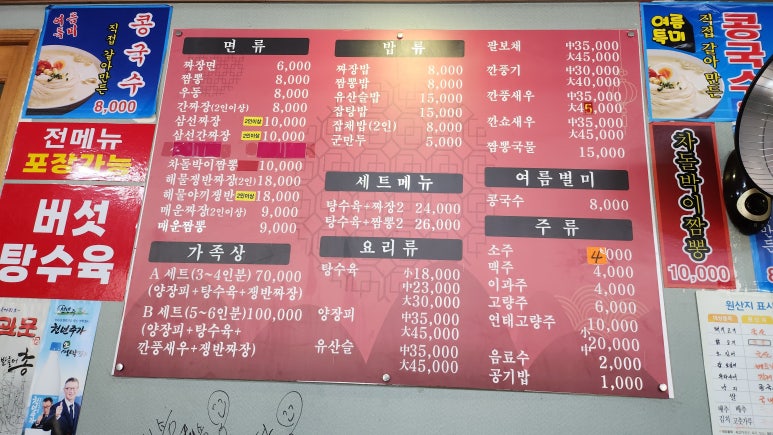 여름
특미
콩국수
직접 갈아만든
8,000
전메뉴
포장가능
버섯
탕수육
면 류
짜장면 6,000
짬뽕 8,000
우동 8,000
간짜장(2인이상) 8,000
삼선짜장 2인이상 10,000
삼선간짜장 2인이상 10,000
차돌박이짬뽕 10,000
해물쟁반짜장(2인) 18,000
해물야끼쟁반 2인이상 18,000
매운짜장(2인이상) 9,000
매운짬뽕 9,000
가 족 상
A 세트(3~4인분) 70,000
(양장피+탕수육+쟁반짜장)
B 세트(5~6인분) 100,000
(양장피+탕수육+
깐풍새우+쟁반짜장)
밥 류
짜장밥 8,000
짬뽕밥 8,000
유산슬밥 15,000
잡탕밥 15,000
잡채밥(2인) 8,000
군만두 5,000
세 트 메 뉴
탕수육+짜장2 24,000
탕수육+짬뽕2 26,000
요 리 류
탕수육 小18,000
中23,000
大30,000
양장피 中35,000
大45,000
유산슬 中35,000
大45,000
팔보채 中35,000
大45,000
깐풍기 中30,000
大40,000
깐풍새우 中35,000
大45,000
깐쇼새우 中35,000
大45,000
짬뽕국물 15,000
여 름 별 미
콩국수 8,000
주 류
소주 4,000
맥주 4,000
이과주 4,000
고량주 6,000
연태고량주 小10,000
中20,000
음료수 2,000
공기밥 1,000
여름
특미
직접 갈아만든
콩국수
차돌박이짬뽕
10,000
원산지 표시